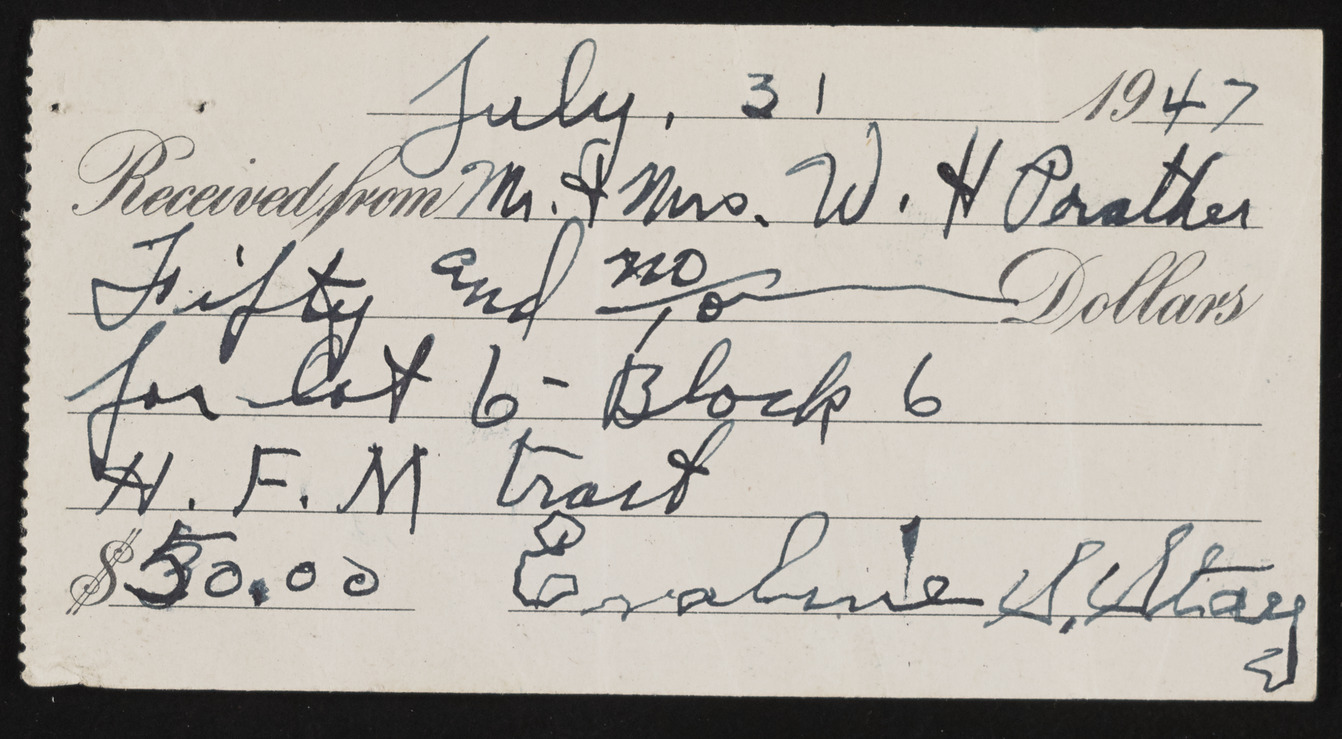 July, 31 1947
Received from Mr. & Mrs. W. H Prather
Fifty and no/0 Dollars
for lot 6 - Block 6
H. F. M tract
$50.00 S. Stay